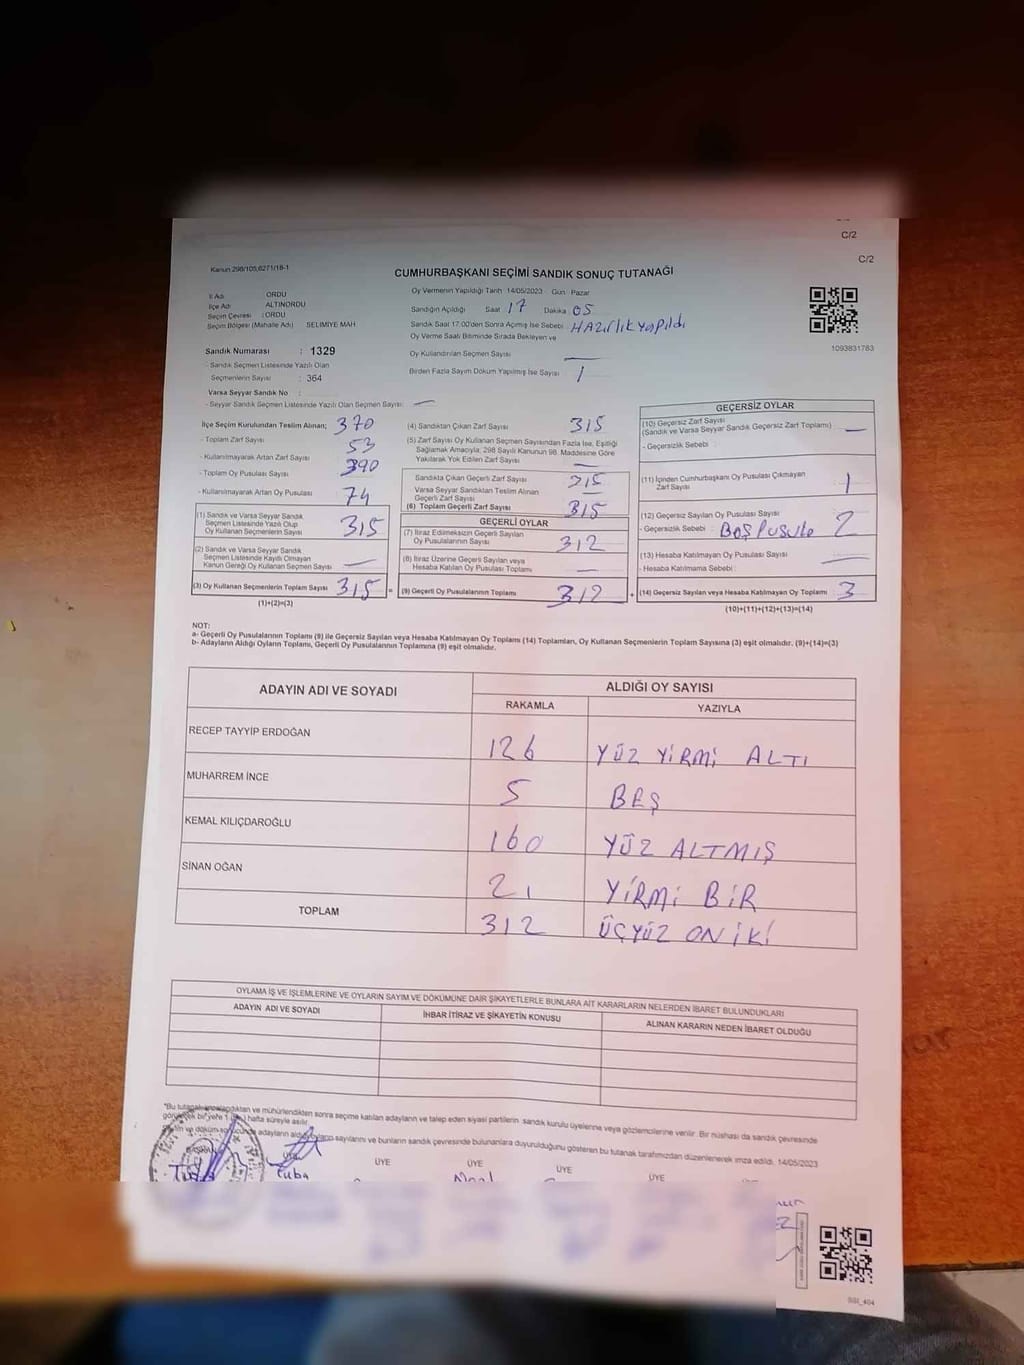 C/2
C/2
Kanun 298/105,6271/18-1
CUMHURBAŞKANI SEÇİMİ SANDIK SONUÇ TUTANAĞI
İl Adı : ORDU
İlçe Adı : ALTINORDU
Seçim Çevresi : ORDU
Seçim Bölgesi (Mahalle Adı) SELİMİYE MAH
Oy Vermenin Yapıldığı Tarih 14/05/2023 Gün Pazar
Sandığın Açıldığı Saat 17 Dakika 05
Sandık Saat 17.00'den Sonra Açılmış İse Sebebi HAZIRLIK YAPILDI
Oy Verme Saati Bitiminde Sırada Bekleyen ve
Oy Kullandırılan Seçmen Sayısı —
Birden Fazla Sayım Döküm Yapılmış İse Sayısı 1
1093831783
Sandık Numarası : 1329
- Sandık Seçmen Listesinde Yazılı Olan
Seçmenlerin Sayısı : 364
Varsa Seyyar Sandık No :
- Seyyar Sandık Seçmen Listesinde Yazılı Olan Seçmen Sayısı: —
İlçe Seçim Kurulundan Teslim Alınan; 370
- Toplam Zarf Sayısı 53
- Kullanılmayarak Artan Zarf Sayısı 390
- Toplam Oy Pusulası Sayısı
- Kullanılmayarak Artan Oy Pusulası 74
(1) Sandık ve Varsa Seyyar Sandık
Seçmen Listesinde Yazılı Olup
Oy Kullanan Seçmenlerin Sayısı 315
(2) Sandık ve Varsa Seyyar Sandık
Seçmen Listesinde Kayıtlı Olmayan
Kanun Gereği Oy Kullanan Seçmen Sayısı —
(3) Oy Kullanan Seçmenlerin Toplam Sayısı 315 =
(1)+(2)=(3)
(4) Sandıktan Çıkan Zarf Sayısı 315
(5) Zarf Sayısı Oy Kullanan Seçmen Sayısından Fazla İse, Eşitliği
Sağlamak Amacıyla, 298 Sayılı Kanunun 98. Maddesine Göre
Yakılarak Yok Edilen Zarf Sayısı —
Sandıkta Çıkan Geçerli Zarf Sayısı 315
Varsa Seyyar Sandıktan Teslim Alınan
Geçerli Zarf Sayısı —
(6) Toplam Geçerli Zarf Sayısı 315
GEÇERLİ OYLAR
(7) İtiraz Edilmeksizin Geçerli Sayılan
Oy Pusulalarının Sayısı 312
(8) İtiraz Üzerine Geçerli Sayılan veya
Hesaba Katılan Oy Pusulası Toplamı —
(9) Geçerli Oy Pusulalarının Toplamı 312 +
GEÇERSİZ OYLAR
(10) Geçersiz Zarf Sayısı
(Sandık ve Varsa Seyyar Sandık Geçersiz Zarf Toplamı) —
- Geçersizlik Sebebi :
(11) İçinden Cumhurbaşkanı Oy Pusulası Çıkmayan
Zarf Sayısı 1
(12) Geçersiz Sayılan Oy Pusulası Sayısı
- Geçersizlik Sebebi : BOŞ PUSULA 2
(13) Hesaba Katılmayan Oy Pusulası Sayısı —
- Hesaba Katılmama Sebebi :
(14) Geçersiz Sayılan veya Hesaba Katılmayan Oy Toplamı 3
(10)+(11)+(12)+(13)=(14)
NOT:
a- Geçerli Oy Pusulalarının Toplamı (9) ile Geçersiz Sayılan veya Hesaba Katılmayan Oy Toplamı (14) Toplamları, Oy Kullanan Seçmenlerin Toplam Sayısına (3) eşit olmalıdır. (9)+(14)=(3)
b- Adayların Aldığı Oyların Toplamı, Geçerli Oy Pusulalarının Toplamına (9) eşit olmalıdır.
ADAYIN ADI VE SOYADI ALDIĞI OY SAYISI
RAKAMLA YAZIYLA
RECEP TAYYİP ERDOĞAN 126 YÜZ YİRMİ ALTI
MUHARREM İNCE 5 BEŞ
KEMAL KILIÇDAROĞLU 160 YÜZ ALTMIŞ
SİNAN OĞAN 21 YİRMİ BİR
TOPLAM 312 ÜÇYÜZ ON İKİ
OYLAMA İŞ VE İŞLEMLERİNE VE OYLARIN SAYIM VE DÖKÜMÜNE DAİR ŞİKAYETLERLE BUNLARA AİT KARARLARIN NELERDEN İBARET BULUNDUKLARI
ADAYIN ADI VE SOYADI İHBAR İTİRAZ VE ŞİKAYETİN KONUSU ALINAN KARARIN NEDEN İBARET OLDUĞU
*Bu tutanak ve mühürlendikten sonra seçime katılan adayların ve talep eden siyasi partilerin sandık kurulu üyelerine veya gözlemcilerine verilir. Bir nüshası da sandık çevresinde
bir yere 1 hafta süreyle asılır.
ve döküm sonucunda adayların aldığı oyların sayılarını ve bunların sandık çevresinde bulunanlara duyurulduğunu gösteren bu tutanak tarafımızdan düzenlenerek imza edildi. 14/05/2023
BAŞKAN ÜYE ÜYE ÜYE ÜYE ÜYE
Tuba